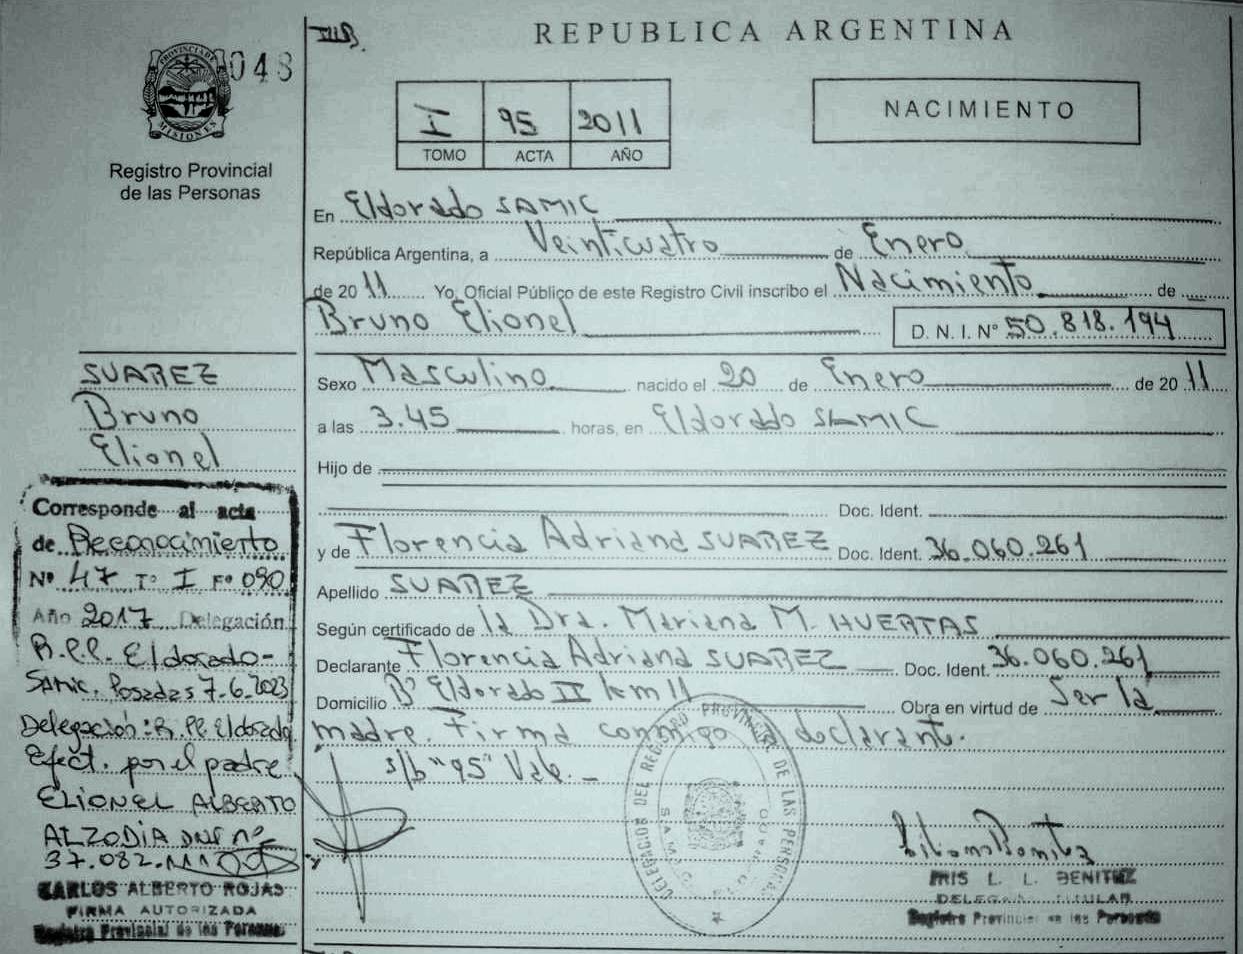 REPUBLICA ARGENTINA
PROVINCIA DE MISIONES
048
Registro Provincial
de las Personas
I 95 2011
TOMO ACTA AÑO
NACIMIENTO
En Eldorado SAMIC
República Argentina, a Veinticuatro de Enero
de 2011 Yo, Oficial Público de este Registro Civil inscribo el Nacimiento de
Bruno Elionel D. N. I. N° 50.818.194
Sexo Masculino nacido el 20 de Enero de 2011
a las 3.45 horas, en Eldorado SAMIC
Hijo de
Doc. Ident.
y de Florencia Adriana SUAREZ Doc. Ident. 36.060.261
Apellido SUAREZ
Según certificado de la Dra. Mariana M. HUERTAS
Declarante Florencia Adriana SUAREZ Doc. Ident. 36.060.261
Domicilio B° Eldorado II km 11 Obra en virtud de Ser la
madre. Firma conmigo la declarante.
s/b "95" Vale.
SUAREZ
Bruno
Elionel
Corresponde al acta
de Reconocimiento
N° 47 T° I F° 090
Año 2017 Delegación
R.P.P. Eldorado-
SAMIC. Posadas 7.6.2023
Delegación: R.PP. Eldorado
Efect. por el padre
ELIONEL ALBERTO
ALZODIA DNI n°
37.082.
CARLOS ALBERTO ROJAS
FIRMA AUTORIZADA
Registro Provincial de las Personas
DELEGACION DEL REGISTRO PROVINCIAL DE LAS PERSONAS
SAMIC ELDORADO
IRIS L. L. BENITEZ
DELEGADA TITULAR
Registro Provincial de las Personas